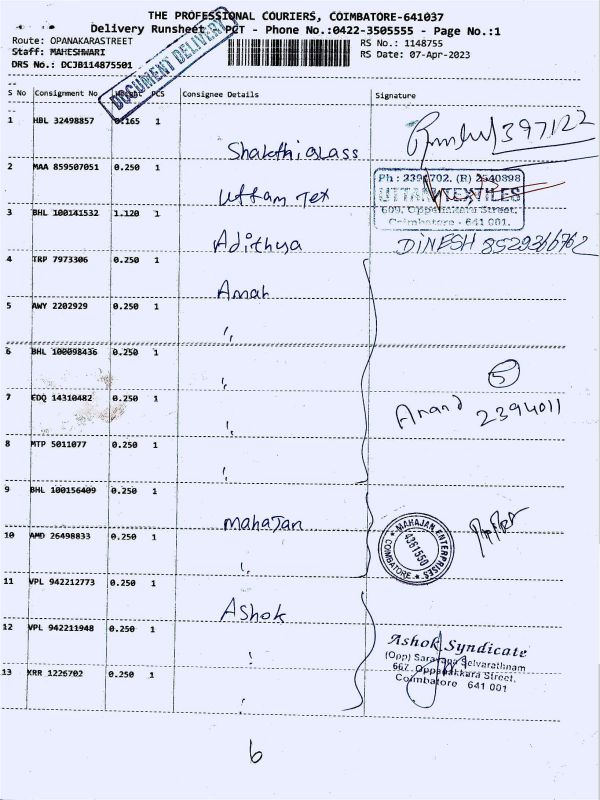 THE PROFESSIONAL COURIERS, COIMBATORE-641037
Delivery Runsheet PCT - Phone No.:0422-3505555 - Page No.:1
Route: OPANAKARASTREET RS No.: 1148755
Staff: MAHESHWARI RS Date: 07-Apr-2023
DRS No.: DCJB114875501
DOCUMENT DELIVERY
S No Consignment No Weight PCS Consignee Details Signature
1 HBL 32498857 0.165 1 Shakthi Glass 397122
2 MAA 859507051 0.250 1 Uttam Tex
Ph : 2394702. (R) 2540898
UTTAM TEXTILES
609, Oppanakkara Street,
Coimbatore - 641 001.
3 BHL 100141532 1.120 1 Adithya DINESH 8529366762
4 TRP 7973306 0.250 1 Aman
5 AWY 2202929 0.250 1 "
6 BHL 100098436 0.250 1 " 5
7 EDQ 14310482 0.250 1 " Anand 2394011
8 MTP 5011077 0.250 1 "
9 BHL 100156409 0.250 1 Mahajan
MAHAJAN ENTERPRISES
4381550
COIMBATORE
10 AMD 26498833 0.250 1 "
11 VPL 942212773 0.250 1 Ashok
12 VPL 942211948 0.250 1 "
Ashok Syndicate
(Opp) Saravana Selvarathnam
667, Oppanakkara Street,
Coimbatore 641 001
13 KRR 1226702 0.250 1 "
6